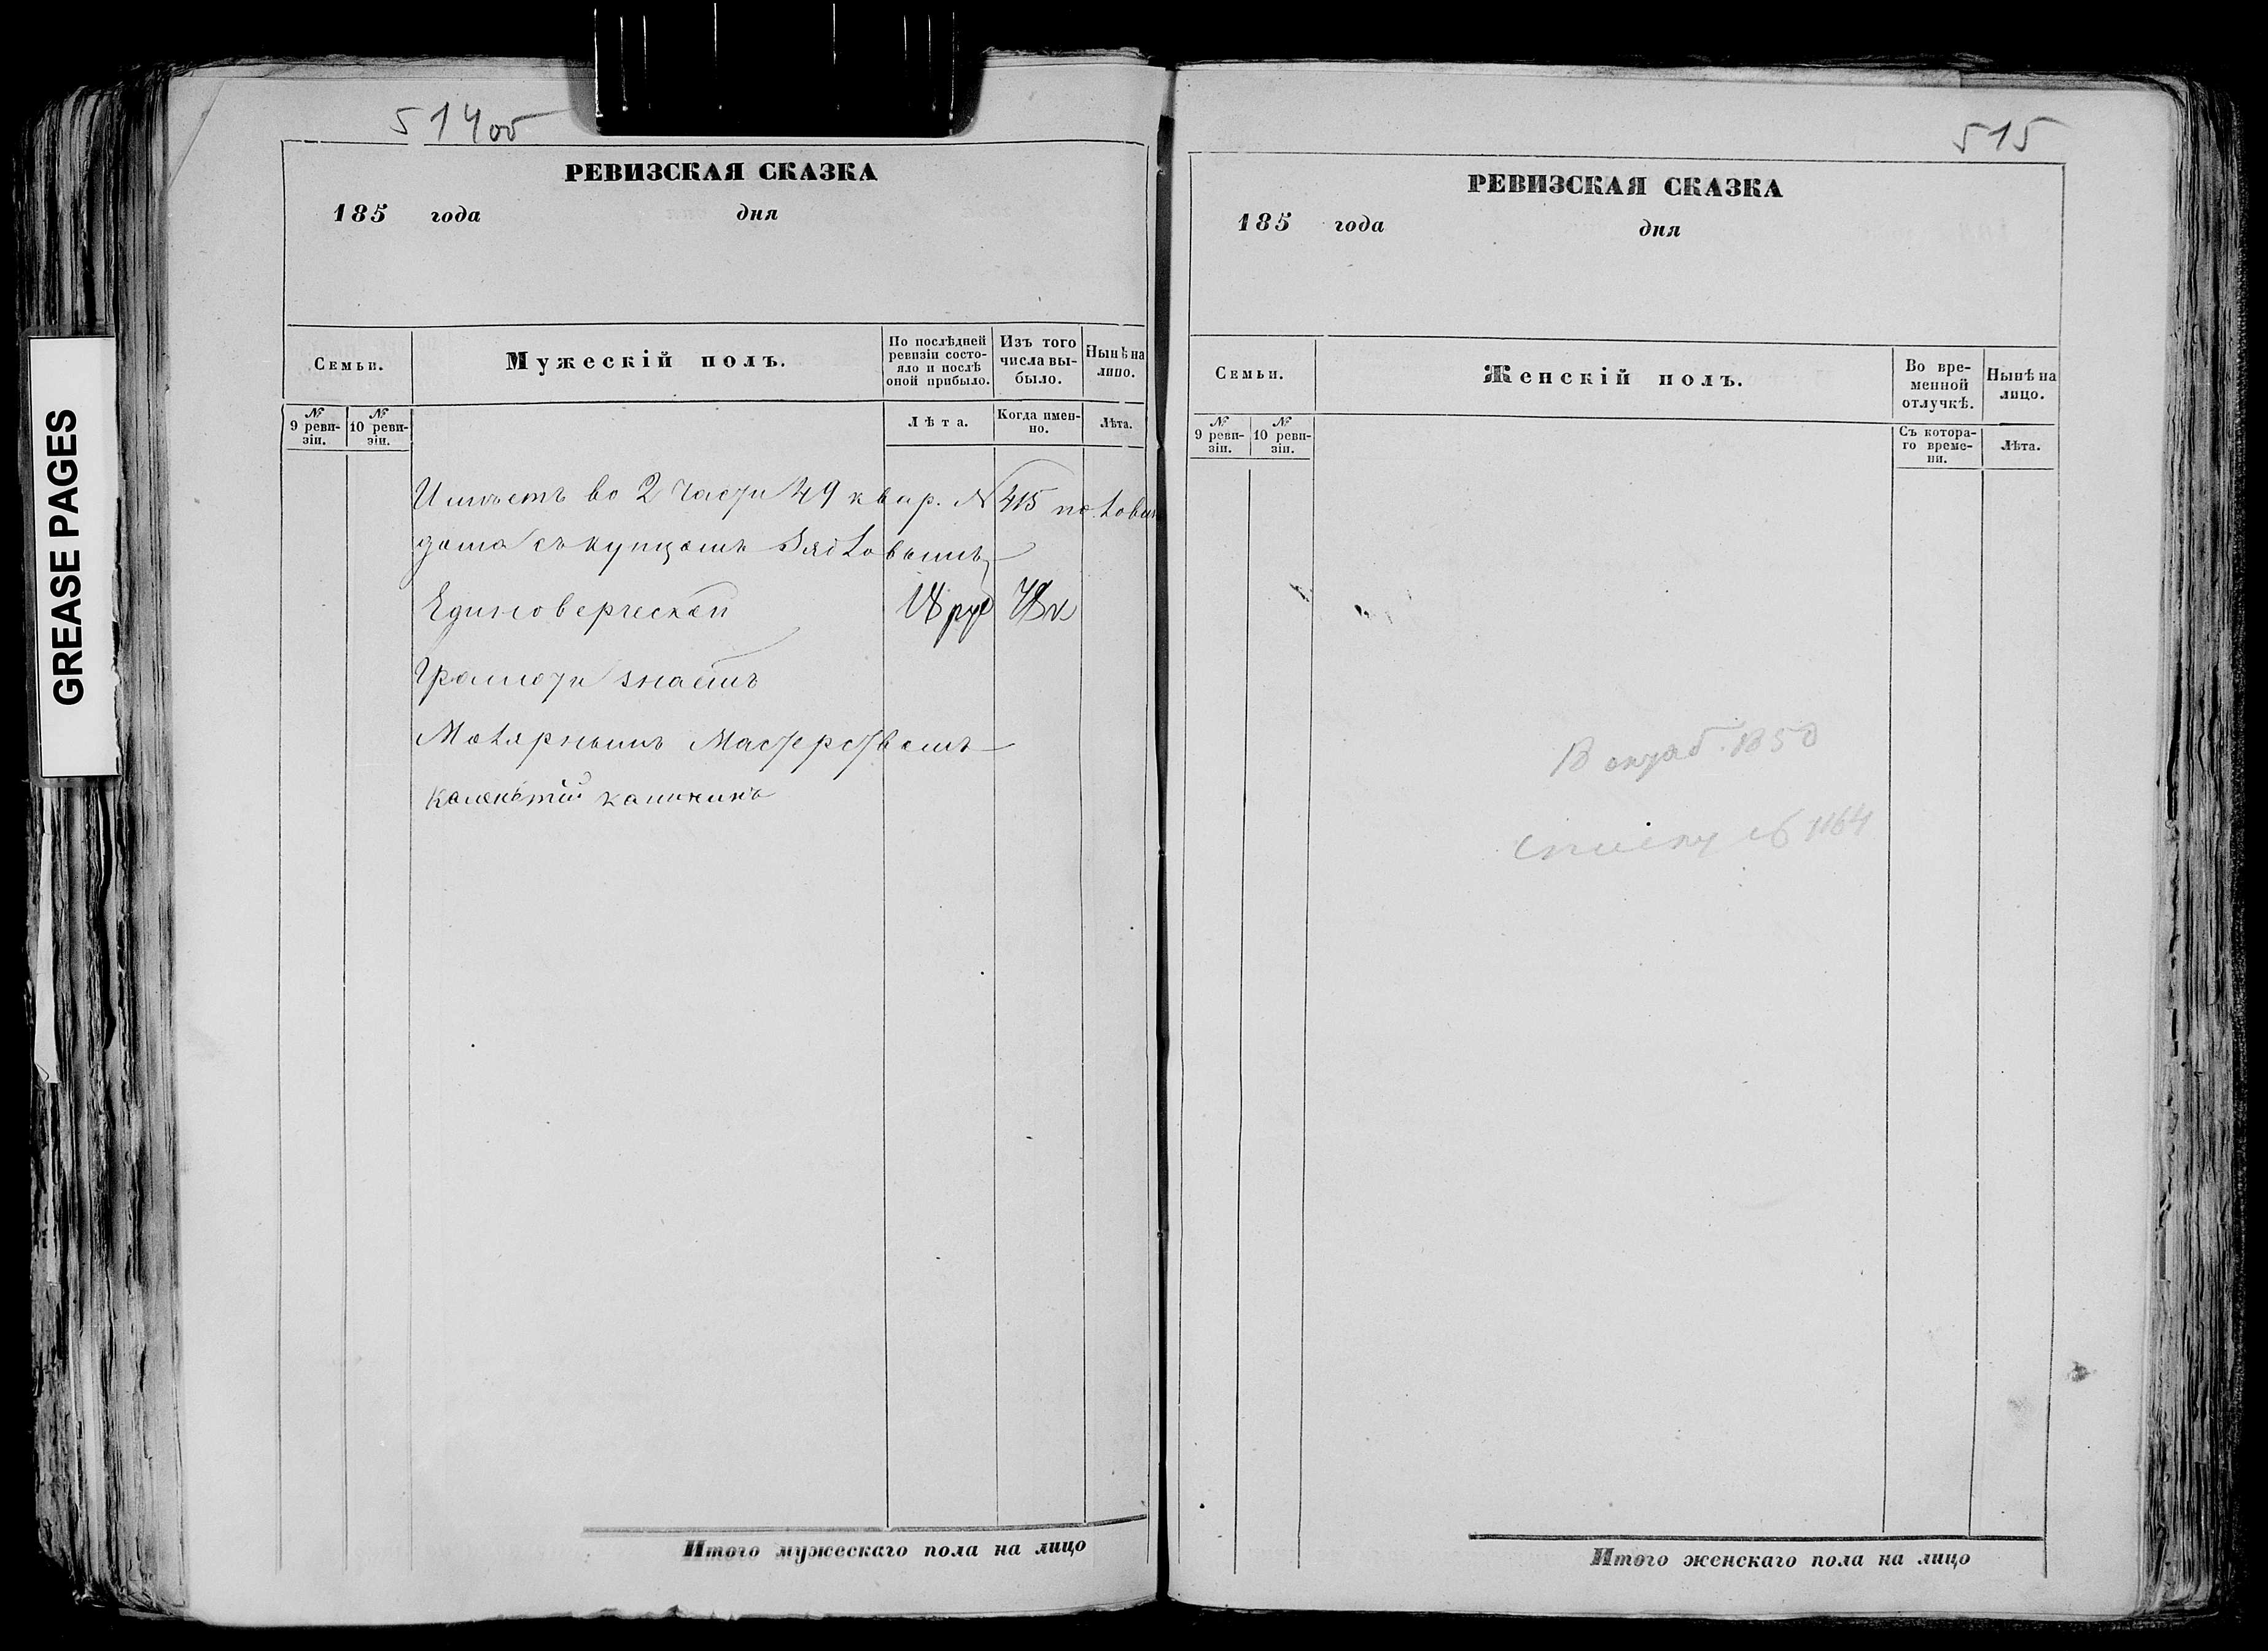 GREASE PAGES
514об
РЕВИЗСКАЯ СКАЗКА
185 года дня
Семьи.
Мужескій полъ.
По послѣдней ревизіи состояло и послѣ оной прибыло.
Изъ того числа выбыло.
Нынѣ на лицо.
№ 9 ревизіи.
№ 10 ревизіи.
Лѣта.
Когда именно.
Лѣта.
Имѣетъ во 2 части 49 квар. № 415 полови
дома съ купцомъ
Единоверческой 18 руб 78 к
Грамоти знаетъ
Малярнымъ Мастерствомъ
Итого мужескаго пола на лицо
515
РЕВИЗСКАЯ СКАЗКА
185 года дня
Семьи.
Женскій полъ.
Во временной отлучкѣ.
Нынѣ на лицо.
№ 9 ревизіи.
№ 10 ревизіи.
Съ котораго времени.
Лѣта.
1850
списку 1164
Итого женскаго пола на лицо